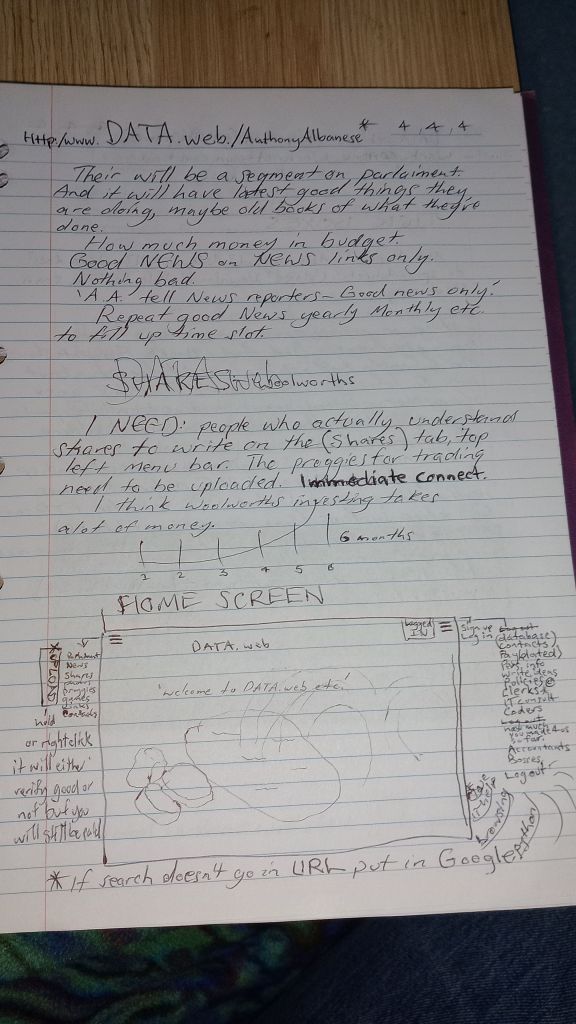 Http:/www. DATA.web./AnthonyAlbanese* 4,4,4
Their will be a segment on parlaiment.
And it will have latest good things they
are doing, maybe old books of what they're
done.
How much money in budget.
Good NEWS on NEWS links only.
Nothing bad.
'A.A.' tell News reporters - Good news only.'
Repeat good News yearly Monthly etc.
to fill up time slot.
Woolworths
I NEED: people who actually understand
shares to write on the (Shares) tab, top
left menu bar. The proggies for trading
need to be uploaded. Immediate connect.
I think woolworths investing takes
alot of money.
6 months
1 2 3 4 5 6
HOME SCREEN
Logged IN
DATA.web
'welcome to DATA.web etc.'
*UPLOAD
News
Shares
proggies
games
links
hold
or right click
it will either
verify good or
not but you
will still be paid
Sign up
Log in (database)
Contacts
Pay (dated)
info
Write ideas
Policies
Clerks
IT consult
Coders
how much
you made 4 us
so far.
Accountants
Bosses
Log out
browsing
* If search doesn't go in URL put in Google